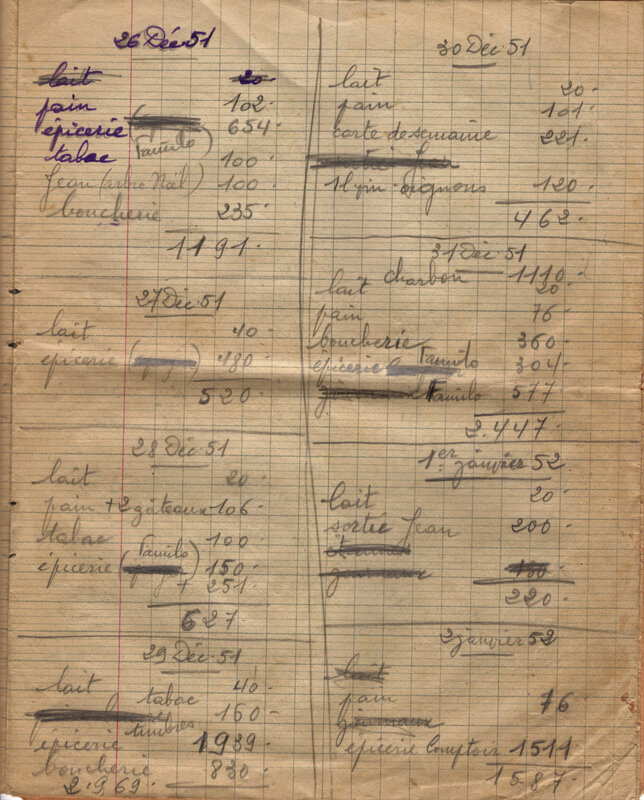 26 Déc 51
lait 20
pain 102
épicerie ( Familo ) 654
tabac 100
Jean (arbre Noël) 100
boucherie 235
1191
27 Déc 51
lait 40
épicerie ( ) 480
520
28 Déc 51
lait 20
pain + 2 gâteaux 106
tabac 100
épicerie ( Familo ) 150
+ 251
627
29 Déc 51
lait 40
tabac 160
timbres
épicerie 1939
boucherie 830
2.969
30 Déc 51
lait 20
pain 101
carte de semaine 221
oignons 120
462
31 Déc 51
charbon 1110
lait 20
pain 76
boucherie 360
épicerie Familo 304
journaux Familo 577
2.447
1er janvier 52
lait 20
sortie Jean 200
journaux 180
220
2 janvier 52
lait
pain 76
journaux
épicerie Comptoir 1511
1587